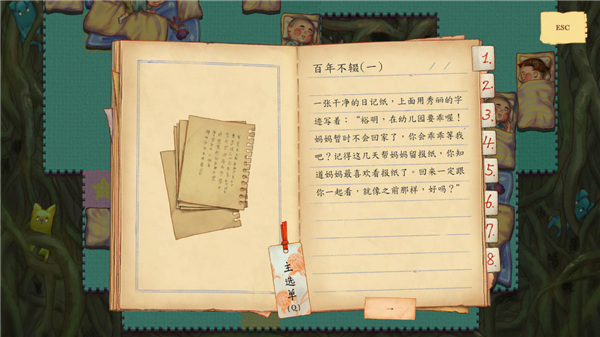 ESC
百年不辍(一)
一张干净的日记纸，上面用秀丽的字
迹写着：“裕明，在幼儿园要乖喔！
妈妈暂时不会回家了。你会乖乖等我
吧？记得这几天帮妈妈留报纸，你知
道妈妈最喜欢看报纸了。回来一定跟
你一起看，就像之前那样，好吗？”
主选单
(Q)
→
1.
2.
3.
4.
5.
6.
7.
8.